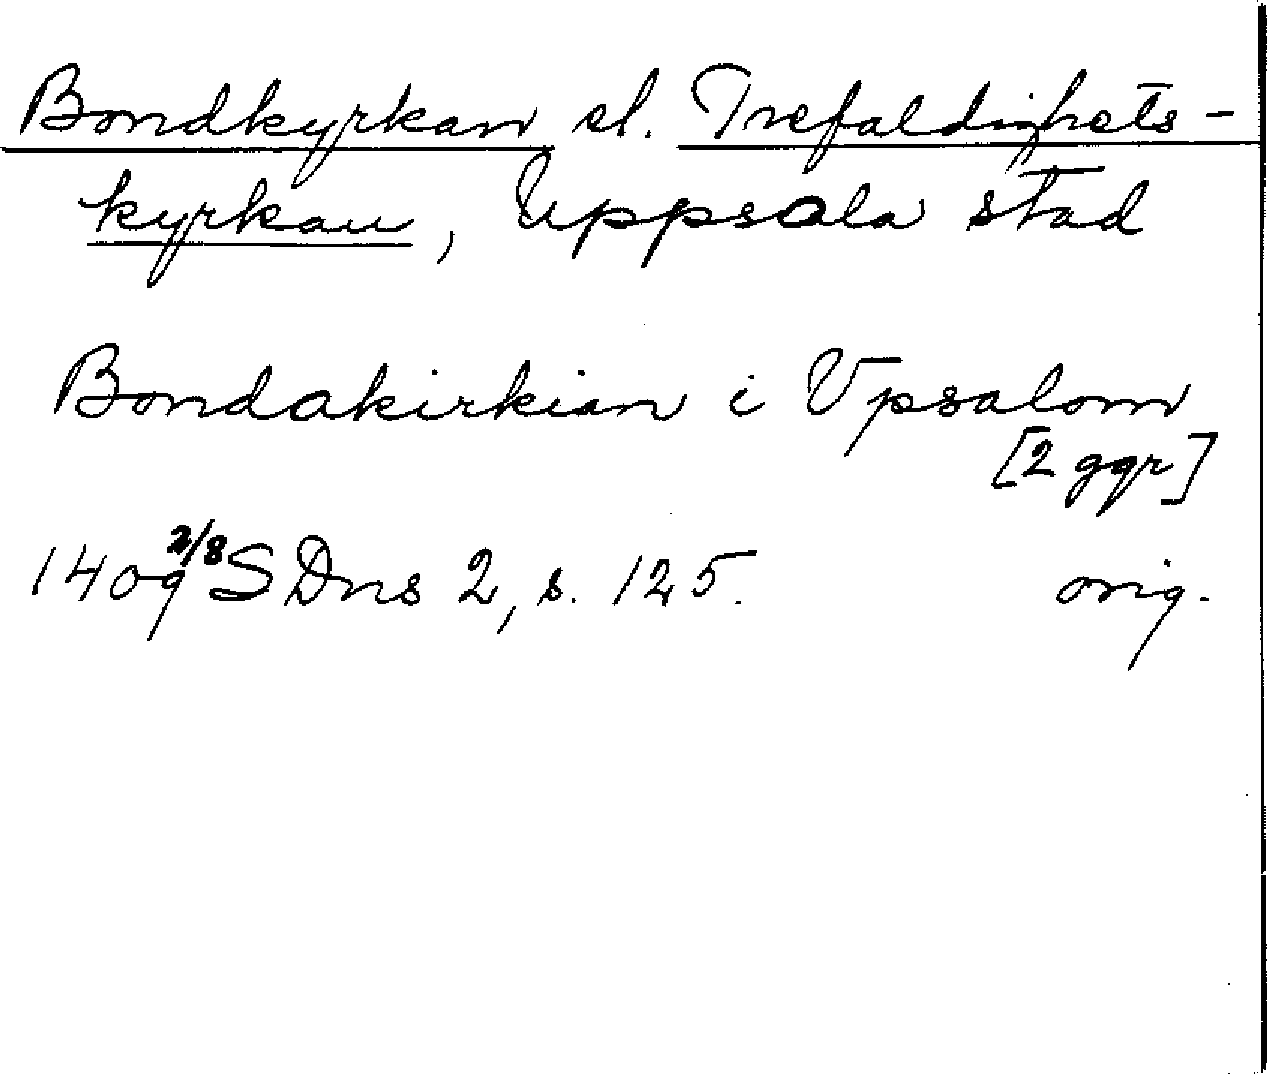 Bondkyrkan el. Trefaldighets-
kyrkan, Uppsala stad
Bondakirkian i Vpsalom
[2 ggr]
1409 2/8 SDns 2, s. 125. orig.